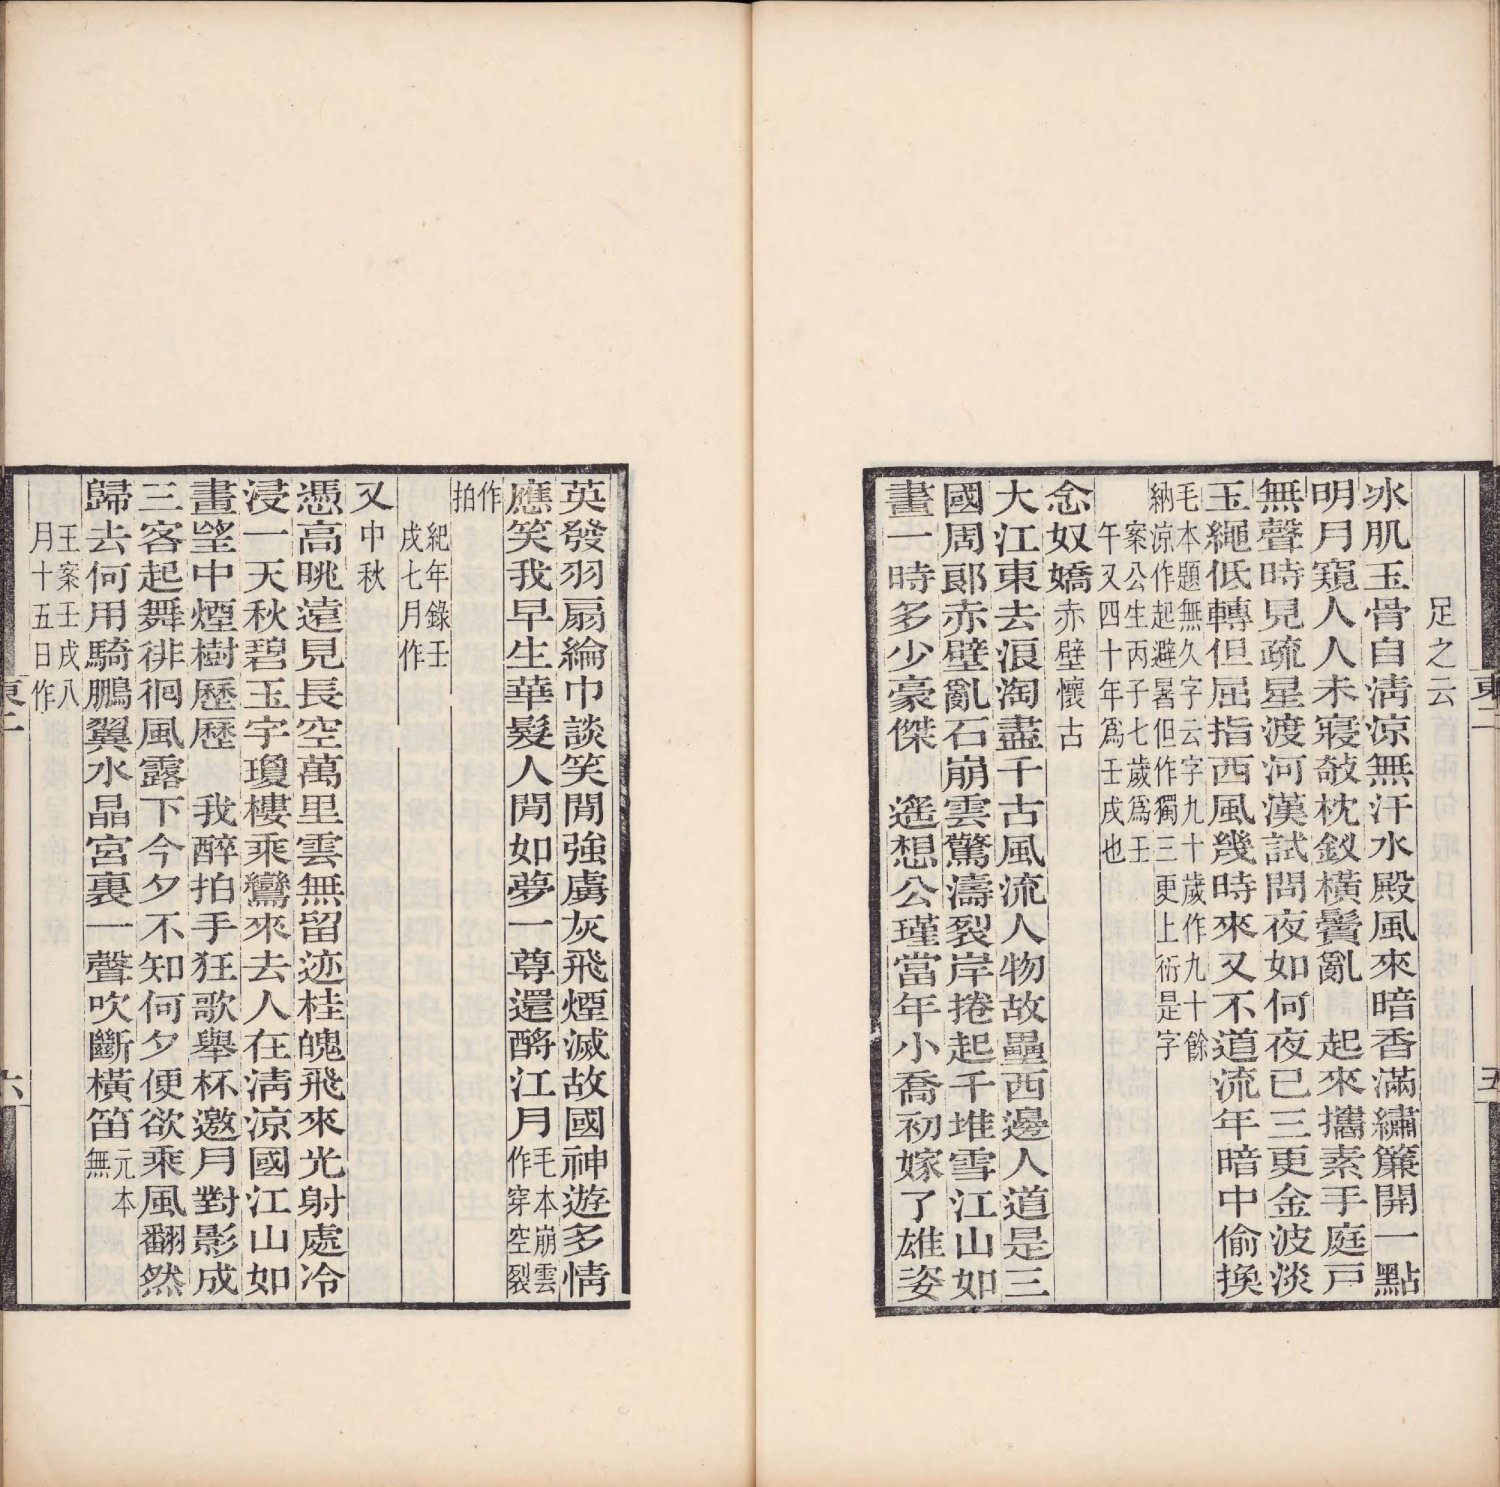 足之云
冰肌玉骨自淸涼無汗水殿風來暗香滿繡簾開一點
明月窺人人未寢攲枕釵橫鬢亂　起來攜素手庭戶
無聲時見疏星渡河漢試問夜如何夜已三更金波淡
玉繩低轉但屈指西風幾時來又不道流年暗中偷換
毛本題無久字云字九十歲作九十餘
納涼作起避暑但作獨三更上衍是字
案公生丙子七歲爲壬
午又四十年爲壬戌也
念奴嬌赤壁懷古
大江東去浪淘盡千古風流人物故壘西邊人道是三
國周郞赤壁亂石崩雲驚濤裂岸捲起千堆雪江山如
畫一時多少豪傑　遙想公瑾當年小喬初嫁了雄姿
東二
五
英發羽扇綸巾談笑閒強虜灰飛煙滅故國神遊多情
應笑我早生華髮人閒如夢一尊還酹江月毛本崩雲
作穿空裂
作
拍
紀年錄壬
戌七月作
又中秋
憑高眺遠見長空萬里雲無留迹桂魄飛來光射處冷
浸一天秋碧玉宇瓊樓乘鸞來去人在淸涼國江山如
畫望中煙樹歷歷　我醉拍手狂歌舉杯邀月對影成
三客起舞徘徊風露下今夕不知何夕便欲乘風翻然
歸去何用騎鵬翼水晶宮裏一聲吹斷橫笛元本
無
王案壬戌八
月十五日作
東二
六